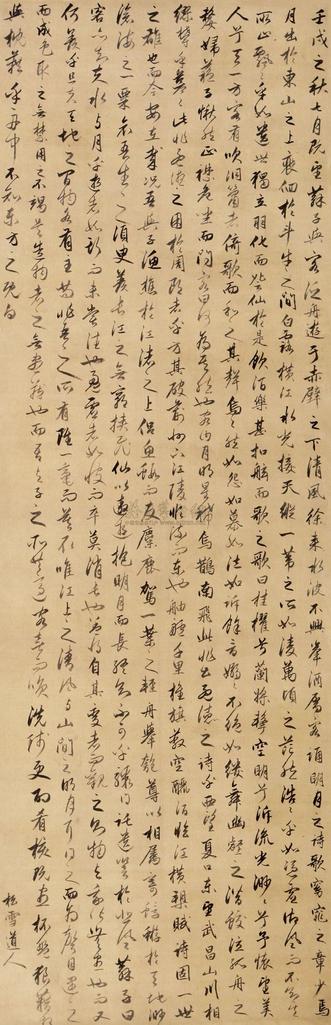 壬戌之秋七月既望蘇子與客泛舟遊于赤壁之下清風徐來水波不興舉酒屬客誦明月之詩歌窈窕之章少焉
月出於東山之上徘徊於斗牛之間白露橫江水光接天縱一葦之所如凌萬頃之茫然浩浩乎如憑虛御風而不知其
所止飄飄乎如遺世獨立羽化而登仙於是飲酒樂甚扣舷而歌之歌曰桂櫂兮蘭槳擊空明兮泝流光渺渺兮予懷望美
人兮天一方客有吹洞簫者倚歌而和之其聲嗚嗚然如怨如慕如泣如訴餘音嫋嫋不絕如縷舞幽壑之潛蛟泣孤舟之
嫠婦蘇子愀然正襟危坐而問客曰何為其然也客曰月明星稀烏鵲南飛此非孟德之詩乎西望夏口東望武昌山川相
繆鬱乎蒼蒼此非孟德之困於周郎者乎方其破荊州下江陵順流而東也舳艫千里旌旗蔽空釃酒臨江橫槊賦詩固一世
之雄也而今安在哉況吾與子漁樵於江渚之上侶魚蝦而友麋鹿駕一葉之輕舟舉匏尊以相屬寄蜉蝣於天地渺
滄海之一粟哀吾生之須臾羨長江之無窮挾飛仙以遨遊抱明月而長終知不可乎驟得託遺響於悲風蘇子曰
客亦知夫水與月乎逝者如斯而未嘗往也盈虛者如彼而卒莫消長也蓋將自其變者而觀之則物與我皆無盡也而又
何羨乎且夫天地之間物各有主苟非吾之所有雖一毫而莫取唯江上之清風與山間之明月耳得之而為聲目遇之
而成色取之無禁用之不竭是造物者之無盡藏也而吾與子之所共適客喜而笑洗盞更酌肴核既盡杯盤狼藉相
與枕藉乎舟中不知東方之既白
松雪道人